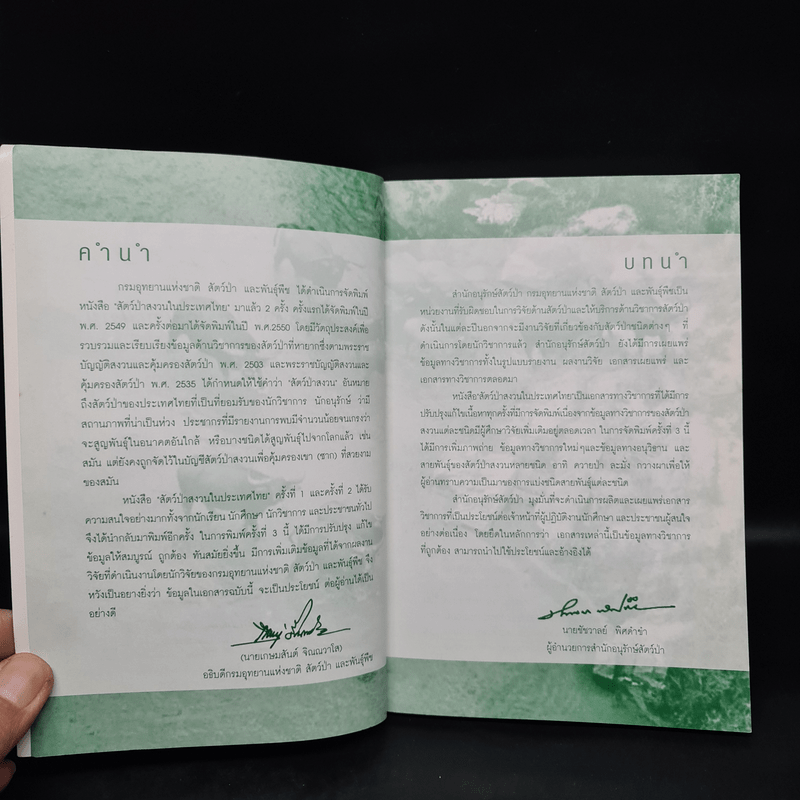 คำนำ
กรมอุทยานแห่งชาติ สัตว์ป่า และพันธุ์พืช ได้ดำเนินการจัดพิมพ์
หนังสือ "สัตว์ป่าสงวนในประเทศไทย" มาแล้ว 2 ครั้ง ครั้งแรกได้จัดพิมพ์ในปี
พ.ศ. 2549 และครั้งต่อมาได้จัดพิมพ์ในปี พ.ศ.2550 โดยมีวัตถุประสงค์เพื่อ
รวบรวมและเรียบเรียงข้อมูลด้านวิชาการของสัตว์ป่าที่หายากซึ่งตามพระราช
บัญญัติสงวนและคุ้มครองสัตว์ป่า พ.ศ. 2503 และพระราชบัญญัติสงวนและ
คุ้มครองสัตว์ป่า พ.ศ. 2535 ได้กำหนดให้ใช้คำว่า "สัตว์ป่าสงวน" อันหมาย
ถึงสัตว์ป่าของประเทศไทยที่เป็นที่ยอมรับของนักวิชาการ นักอนุรักษ์ ว่ามี
สถานภาพที่น่าเป็นห่วง ประชากรที่มีรายงานการพบมีจำนวนน้อยจนเกรงว่า
จะสูญพันธุ์ในอนาคตอันใกล้ หรือบางชนิดได้สูญพันธุ์ไปจากโลกแล้ว เช่น
สมัน แต่ยังคงถูกจัดไว้ในบัญชีสัตว์ป่าสงวนเพื่อคุ้มครองเขา (ซาก) ที่สวยงาม
ของสมัน
หนังสือ "สัตว์ป่าสงวนในประเทศไทย" ครั้งที่ 1 และครั้งที่ 2 ได้รับ
ความสนใจอย่างมากทั้งจากนักเรียน นักศึกษา นักวิชาการ และประชาชนทั่วไป
จึงได้นำกลับมาพิมพ์อีกครั้ง ในการพิมพ์ครั้งที่ 3 นี้ ได้มีการปรับปรุง แก้ไข
ข้อมูลให้สมบูรณ์ ถูกต้อง ทันสมัยยิ่งขึ้น มีการเพิ่มเติมข้อมูลที่ได้จากผลงาน
วิจัยที่ดำเนินงานโดยนักวิจัยของกรมอุทยานแห่งชาติ สัตว์ป่า และพันธุ์พืช จึง
หวังเป็นอย่างยิ่งว่า ข้อมูลในเอกสารฉบับนี้ จะเป็นประโยชน์ ต่อผู้อ่านได้เป็น
อย่างดี
(นายเกษมสันต์ จิณณวาโส)
อธิบดีกรมอุทยานแห่งชาติ สัตว์ป่า และพันธุ์พืช
บทนำ
สำนักอนุรักษ์สัตว์ป่า กรมอุทยานแห่งชาติ สัตว์ป่า และพันธุ์พืชเป็น
หน่วยงานที่รับผิดชอบในการวิจัยด้านสัตว์ป่าและให้บริการด้านวิชาการสัตว์ป่า
ดังนั้นในแต่ละปีนอกจากจะมีงานวิจัยที่เกี่ยวข้องกับสัตว์ป่าชนิดต่างๆ ที่
ดำเนินการโดยนักวิชาการแล้ว สำนักอนุรักษ์สัตว์ป่า ยังได้มีการเผยแพร่
ข้อมูลทางวิชาการทั้งในรูปแบบรายงาน ผลงานวิจัย เอกสารเผยแพร่ และ
เอกสารทางวิชาการตลอดมา
หนังสือ"สัตว์ป่าสงวนในประเทศไทย"เป็นเอกสารทางวิชาการที่ได้มีการ
ปรับปรุงแก้ไขเนื้อหาทุกครั้งที่มีการจัดพิมพ์เนื่องจากข้อมูลทางวิชาการของสัตว์ป่า
สงวนแต่ละชนิดมีผู้ศึกษาวิจัยเพิ่มเติมอยู่ตลอดเวลา ในการจัดพิมพ์ครั้งที่ 3 นี้
ได้มีการเพิ่มภาพถ่าย ข้อมูลทางวิชาการใหม่ๆและข้อมูลทางอนุวิธาน และ
สายพันธุ์ของสัตว์ป่าสงวนหลายชนิด อาทิ ควายป่า ละมั่ง กวางผาเพื่อให้
ผู้อ่านทราบความเป็นมาของการแบ่งชนิดสายพันธุ์แต่ละชนิด
สำนักอนุรักษ์สัตว์ป่า มุ่งมั่นที่จะดำเนินการผลิตและเผยแพร่เอกสาร
วิชาการที่เป็นประโยชน์ต่อเจ้าหน้าที่ผู้ปฏิบัติงานนักศึกษา และประชาชนผู้สนใจ
อย่างต่อเนื่อง โดยยึดในหลักการว่า เอกสารเหล่านี้เป็นข้อมูลทางวิชาการ
ที่ถูกต้อง สามารถนำไปใช้ประโยชน์และอ้างอิงได้
นายชัชวาลย์ พิศดำขำ
ผู้อำนวยการสำนักอนุรักษ์สัตว์ป่า